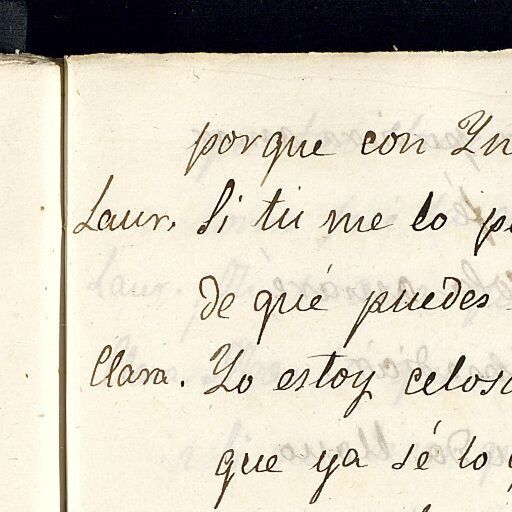 porque con Yn
Laur. Si tu me lo p
de qué puedes
Clara. Yo estoy celos
que ya sé lo